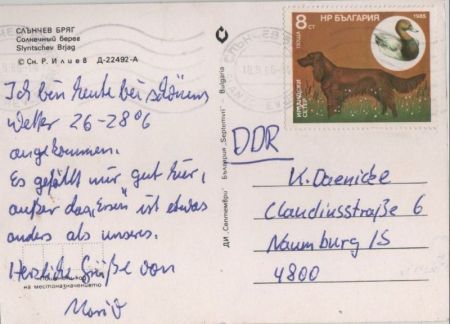 СЛЪНЧЕВ БРЯГ
Солнечный берег
Slyntschev Brjag
© Сн. Р. Илиев Д-22492-А
Ich bin heute bei schönem
Wetter 26-28°C
angekommen.
Es gefällt mir gut hier,
außer das „Essen" ist etwas
anders als unseres.
Herzliche Grüße von
на местоназначението
ДИ „Септември" България "Septemvri" Bulgaria
8 СТ
НР БЪЛГАРИЯ
1985
ПОЩА
ИРЛАНДСКИ
СЕТЕР
DDR
K. Daenicke
Claudiusstraße 6
Naumburg/S
4800